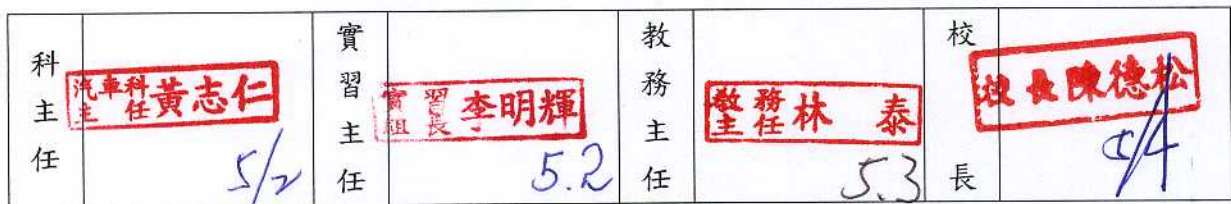 科主任
汽車科主任 黃志仁
5/2
實習主任
實習組長 李明輝
5.2
教務主任
教務主任 林泰
5.3
校長
校長陳德松
5/4